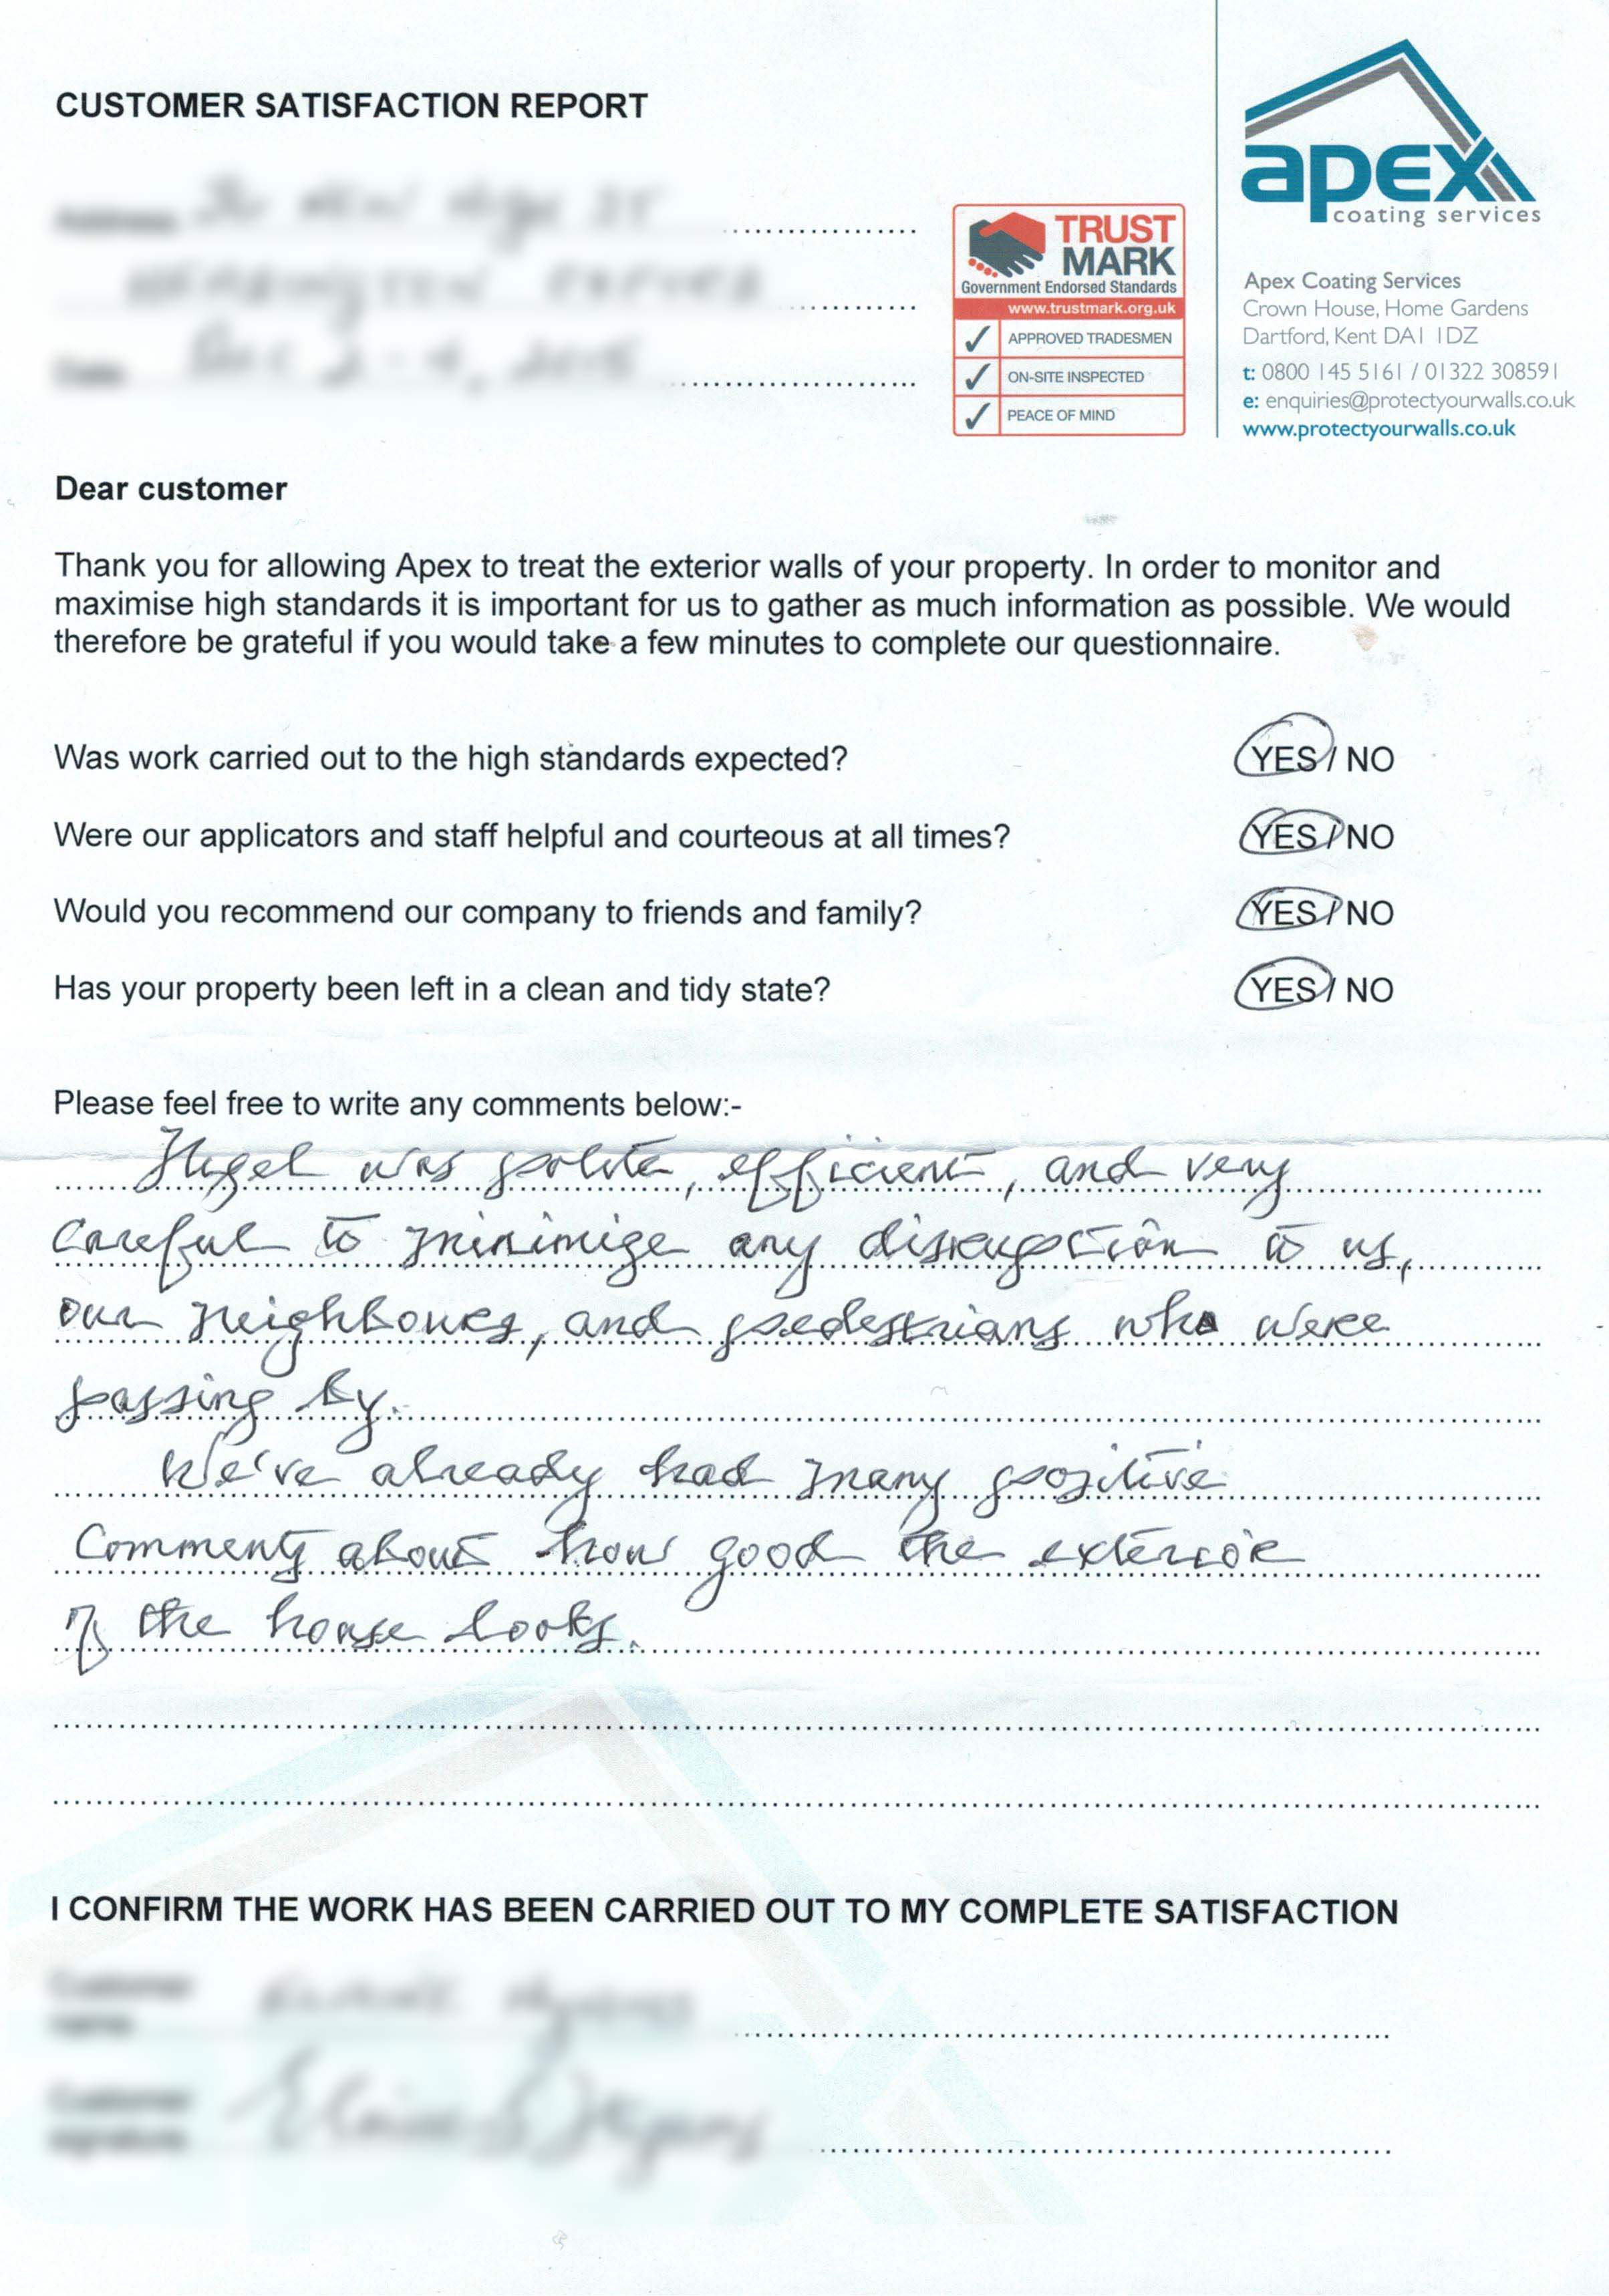 CUSTOMER SATISFACTION REPORT
apex
coating services
TRUST
MARK
Government Endorsed Standards
www.trustmark.org.uk
APPROVED TRADESMEN
ON-SITE INSPECTED
PEACE OF MIND
Apex Coating Services
Crown House, Home Gardens
Dartford, Kent DA1 1DZ
t: 0800 145 5161 / 01322 308591
e: enquiries@protectyourwalls.co.uk
www.protectyourwalls.co.uk
Dear customer
Thank you for allowing Apex to treat the exterior walls of your property. In order to monitor and
maximise high standards it is important for us to gather as much information as possible. We would
therefore be grateful if you would take a few minutes to complete our questionnaire.
Was work carried out to the high standards expected? YES / NO
Were our applicators and staff helpful and courteous at all times? YES / NO
Would you recommend our company to friends and family? YES / NO
Has your property been left in a clean and tidy state? YES / NO
Please feel free to write any comments below:-
was polite, efficient, and very
careful to minimize any disruption to us,
our neighbours, and pedestrians who were
passing by.
We've already had many positive
comments about how good the exterior
of the house looks.
I CONFIRM THE WORK HAS BEEN CARRIED OUT TO MY COMPLETE SATISFACTION